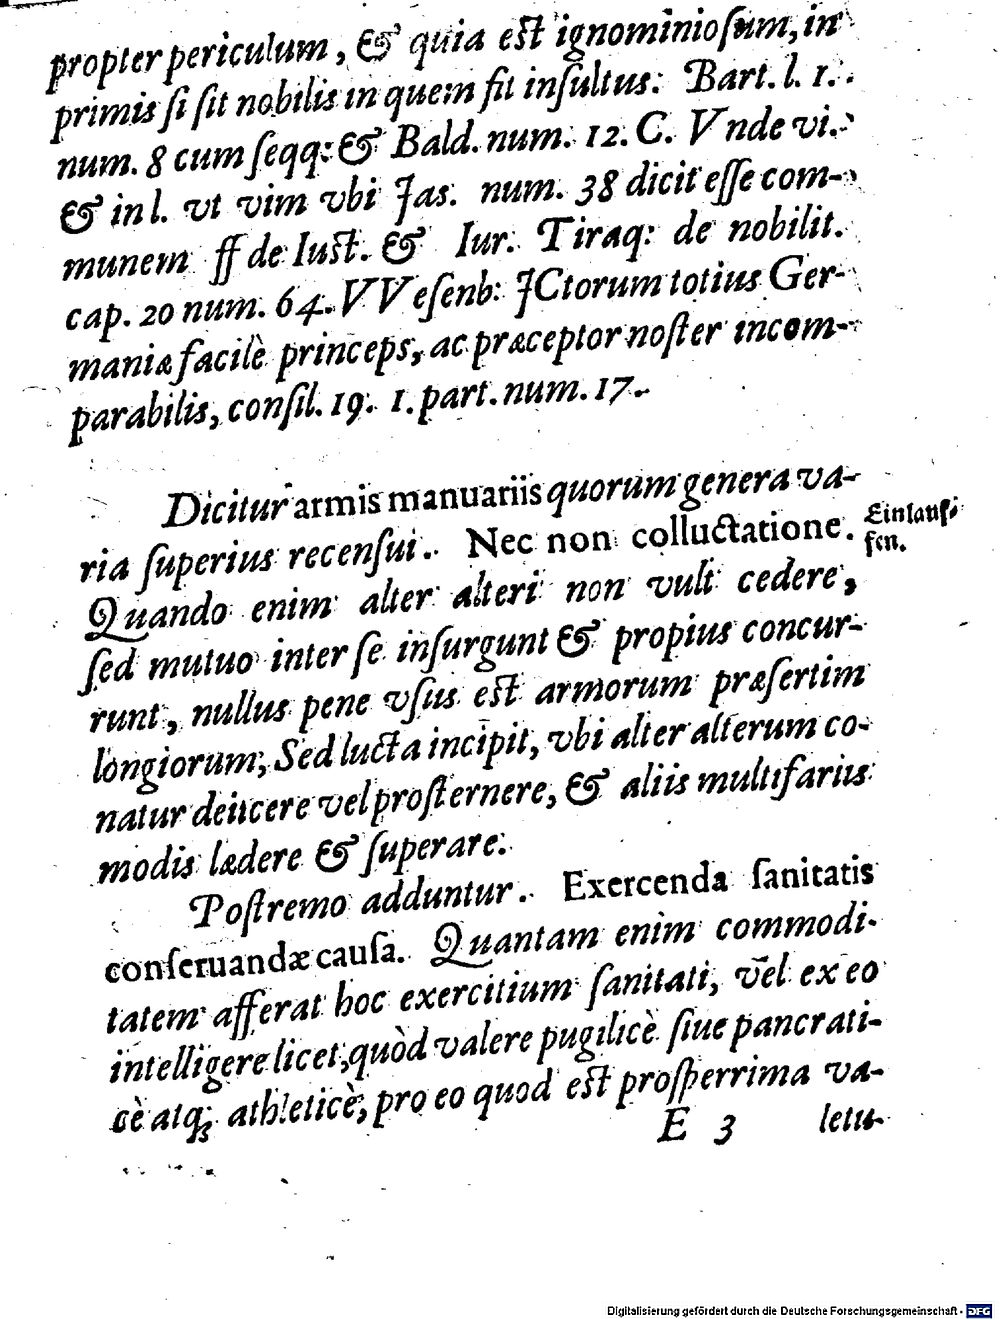 propter periculum, & quia est ignominiosum, in
primis si sit nobilis in quem fit insultus: Bart. l. 1.
num. 8 cum seqq: & Bald. num. 12. C. Vnde vi.
& in l. vt vim vbi Jas. num. 38 dicit esse com-
munem ff de Iust. & Iur. Tiraq: de nobilit.
cap. 20 num. 64. VVesenb: JCtorum totius Ger-
maniæ facilè princeps, ac præceptor noster incom-
parabilis, consil. 19. 1. part. num. 17.
Dicitur armis manuariis quorum genera va-
ria superius recensui. Nec non colluctatione.
Einlauf-
fen.
Quando enim alter alteri non vult cedere,
sed mutuo inter se insurgunt & propius concur-
runt, nullus pene vsus est armorum præsertim
longiorum; Sed lucta incipit, vbi alter alterum co-
natur deiicere vel prosternere, & aliis multifarius
modis lædere & superare.
Postremo adduntur. Exercenda sanitatis
conseruandæ causa. Quantam enim commodi-
tatem afferat hoc exercitium sanitati, vel ex eo
intelligere licet, quòd valere pugilicè siue pancrati-
cè atq; athleticè, pro eo quod est prosperrima va-
E 3 letu-
Digitalisierung gefördert durch die Deutsche Forschungsgemeinschaft - DFG